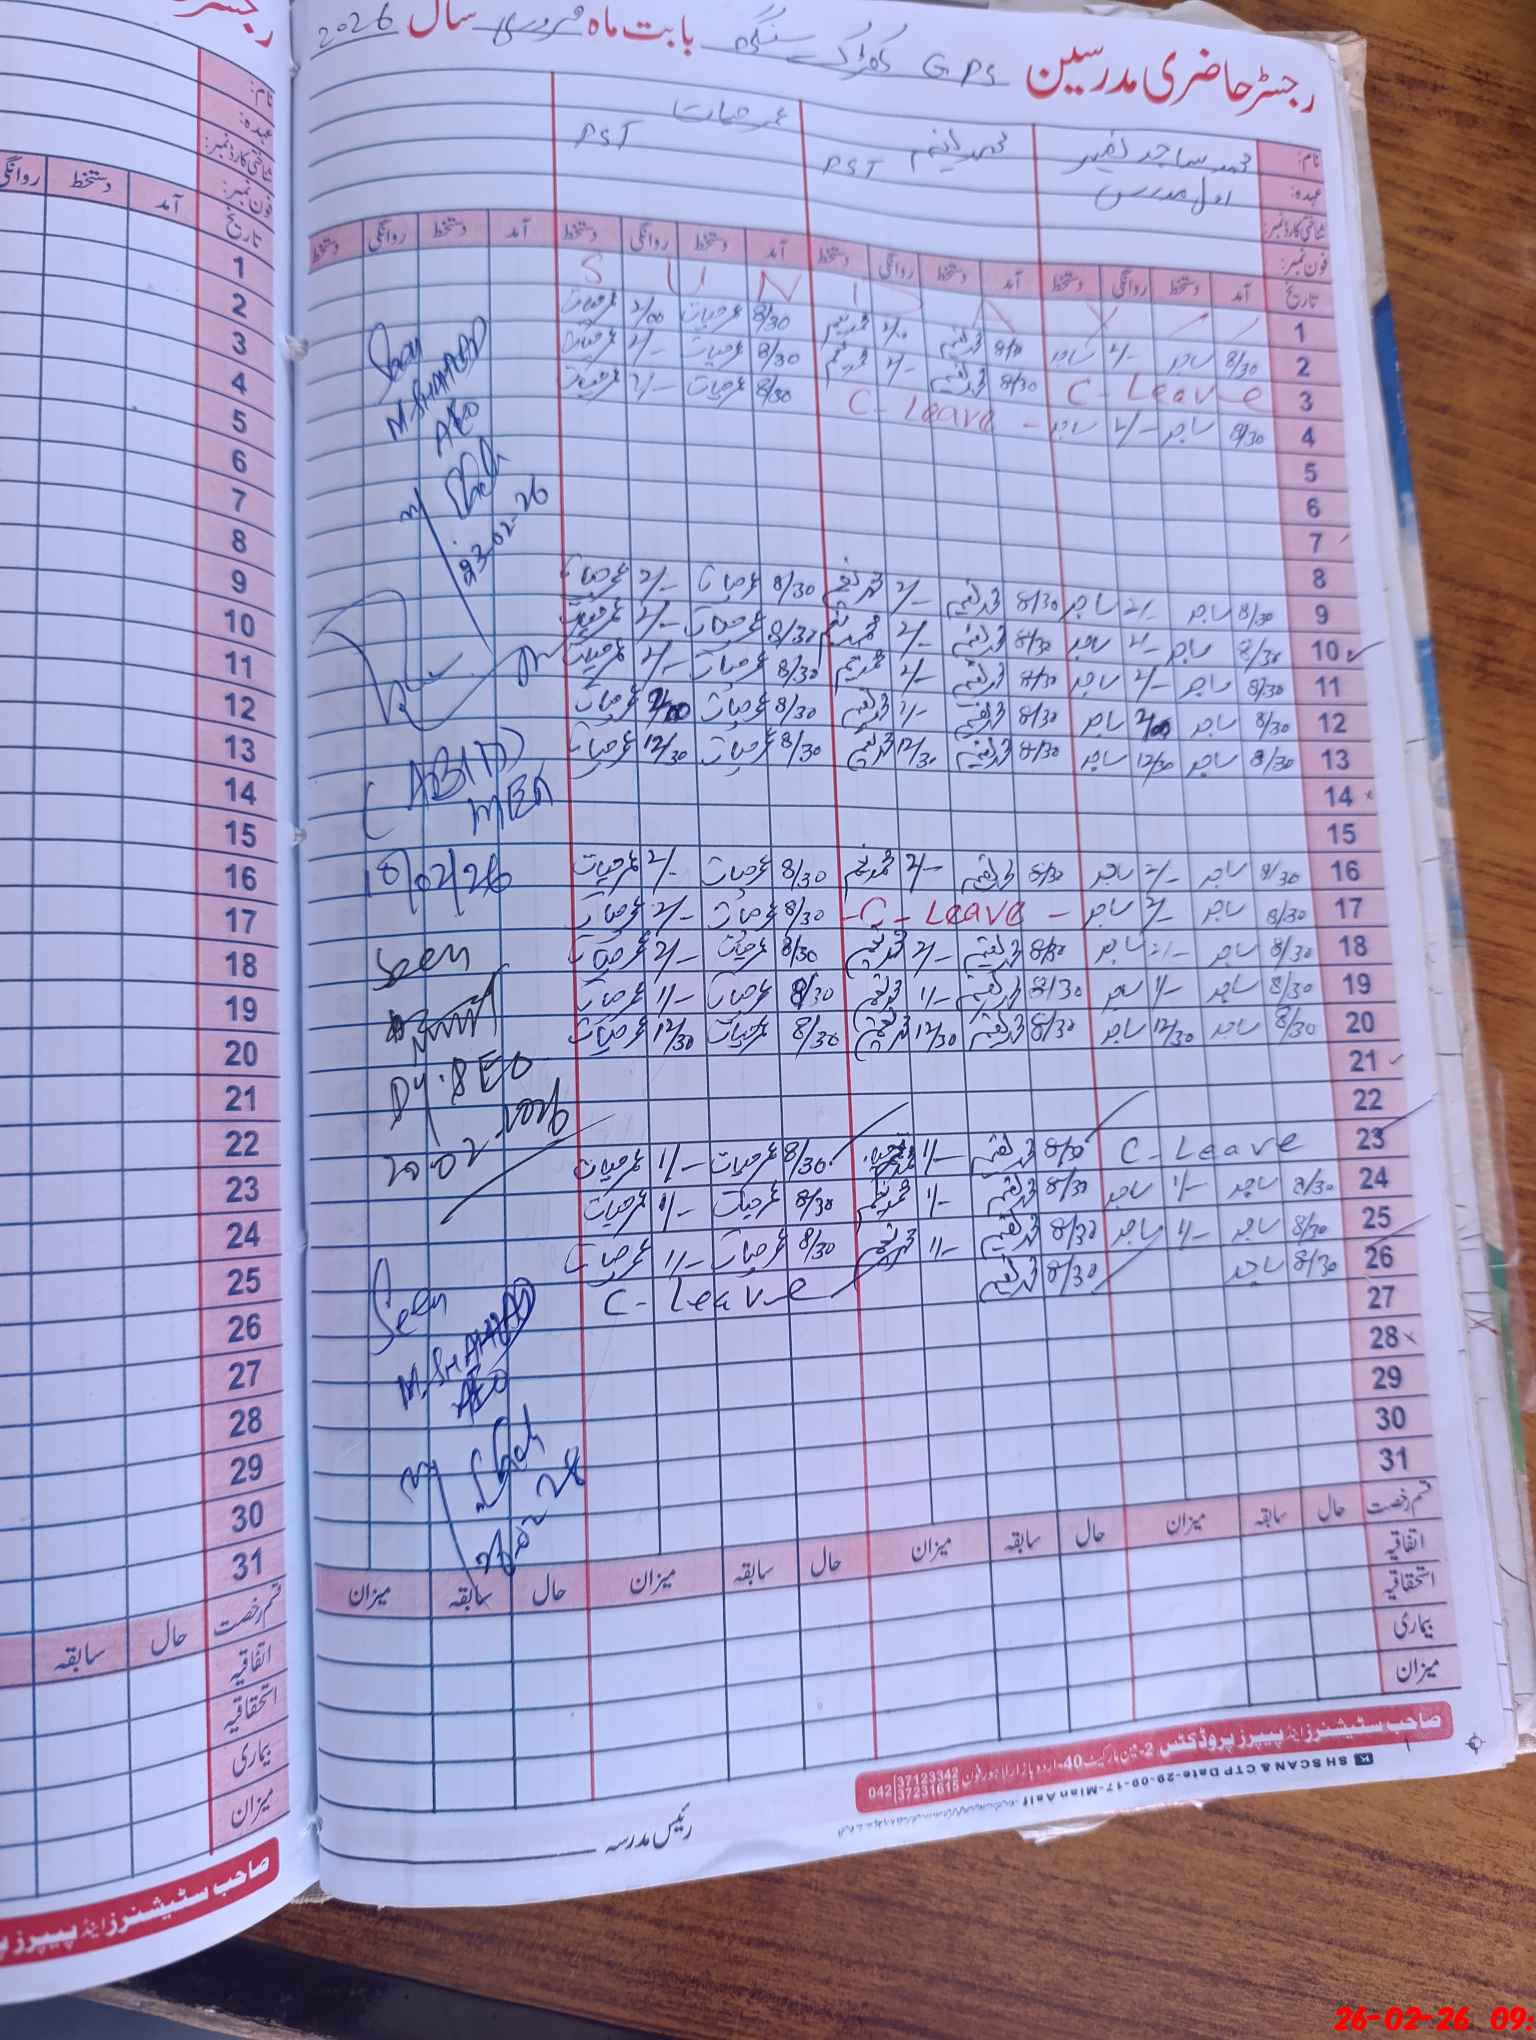 رجسٹر حاضری مدرسین GPS بابت ماہ فروری سال 2026
نام: محمد ساجد نصیر محمد نعیم عمر حیات
عہدہ: اول مدرس PST PST
شناختی کارڈ نمبر:
فون نمبر:
تاریخ آمد دستخط روانگی دستخط آمد دستخط روانگی دستخط آمد دستخط روانگی دستخط آمد دستخط روانگی دستخط
1 S U N D A Y
2 8/30 ساجد 2/- ساجد 8/30 محمد نعیم 2/- محمد نعیم 8/30 عمر حیات 2/00 عمر حیات
3 C-Leave 8/30 محمد نعیم 2/- محمد نعیم 8/30 عمر حیات 2/- عمر حیات
4 8/30 ساجد 2/- ساجد - C-Leave 8/30 عمر حیات 2/- عمر حیات
5
6
7
8
9 8/30 ساجد 2/- ساجد 8/30 محمد نعیم 2/- محمد نعیم 8/30 عمر حیات 2/- عمر حیات
10 8/30 ساجد 2/- ساجد 8/30 محمد نعیم 2/- محمد نعیم 8/30 عمر حیات 2/- عمر حیات
11 8/30 ساجد 2/- ساجد 8/30 محمد نعیم 2/- محمد نعیم 8/30 عمر حیات 2/- عمر حیات
12 8/30 ساجد 2/00 ساجد 8/30 محمد نعیم 2/- محمد نعیم 8/30 عمر حیات 2/00 عمر حیات
13 8/30 ساجد 12/30 ساجد 8/30 محمد نعیم 12/30 محمد نعیم 8/30 عمر حیات 12/30 عمر حیات
14
15
16 8/30 ساجد 2/- ساجد 8/30 محمد نعیم 2/- محمد نعیم 8/30 عمر حیات 2/- عمر حیات
17 8/30 ساجد 2/- ساجد - C-Leave - 8/30 عمر حیات 2/- عمر حیات
18 8/30 ساجد 2/- ساجد 8/30 محمد نعیم 2/- محمد نعیم 8/30 عمر حیات 2/- عمر حیات
19 8/30 ساجد 1/- ساجد 8/30 محمد نعیم 1/- محمد نعیم 8/30 عمر حیات 1/- عمر حیات
20 8/30 ساجد 12/30 ساجد 8/30 محمد نعیم 12/30 محمد نعیم 8/30 عمر حیات 12/30 عمر حیات
21
22
23 C-Leave 8/30 محمد نعیم 1/- محمد نعیم 8/30 عمر حیات 1/- عمر حیات
24 8/30 ساجد 1/- ساجد 8/30 محمد نعیم 1/- محمد نعیم 8/30 عمر حیات 1/- عمر حیات
25 8/30 ساجد 1/- ساجد 8/30 محمد نعیم 1/- محمد نعیم 8/30 عمر حیات 1/- عمر حیات
26 8/30 ساجد 8/30 محمد نعیم C-Leave
27
28
29
30
31
Seen
M.SHAHZAD
AEO
23-02-26
(ABID)
MEA
18/02/26
Seen
Dy.DEO
Seen
M.SHAHZAD
AEO
قسم رخصت حال سابقہ میزان حال سابقہ میزان حال سابقہ میزان حال سابقہ میزان
اتفاقیہ
استحقاقیہ
بیماری
میزان
صاحب سٹیشنرز اینڈ پیپرز پروڈکٹس 2-مین مارکیٹ 40-اردو بازار لاہور فون 042 37123342 37231615
SH SCAN & CTP Date-29-09-17-Mian Asif
رئیس مدرسہ
نام:
عہدہ:
شناختی کارڈ نمبر:
فون نمبر:
تاریخ آمد دستخط روانگی
1
2
3
4
5
6
7
8
9
10
11
12
13
14
15
16
17
18
19
20
21
22
23
24
25
26
27
28
29
30
31
قسم رخصت حال سابقہ
اتفاقیہ
استحقاقیہ
بیماری
میزان
صاحب سٹیشنرز اینڈ پیپرز
26-02-26 09: